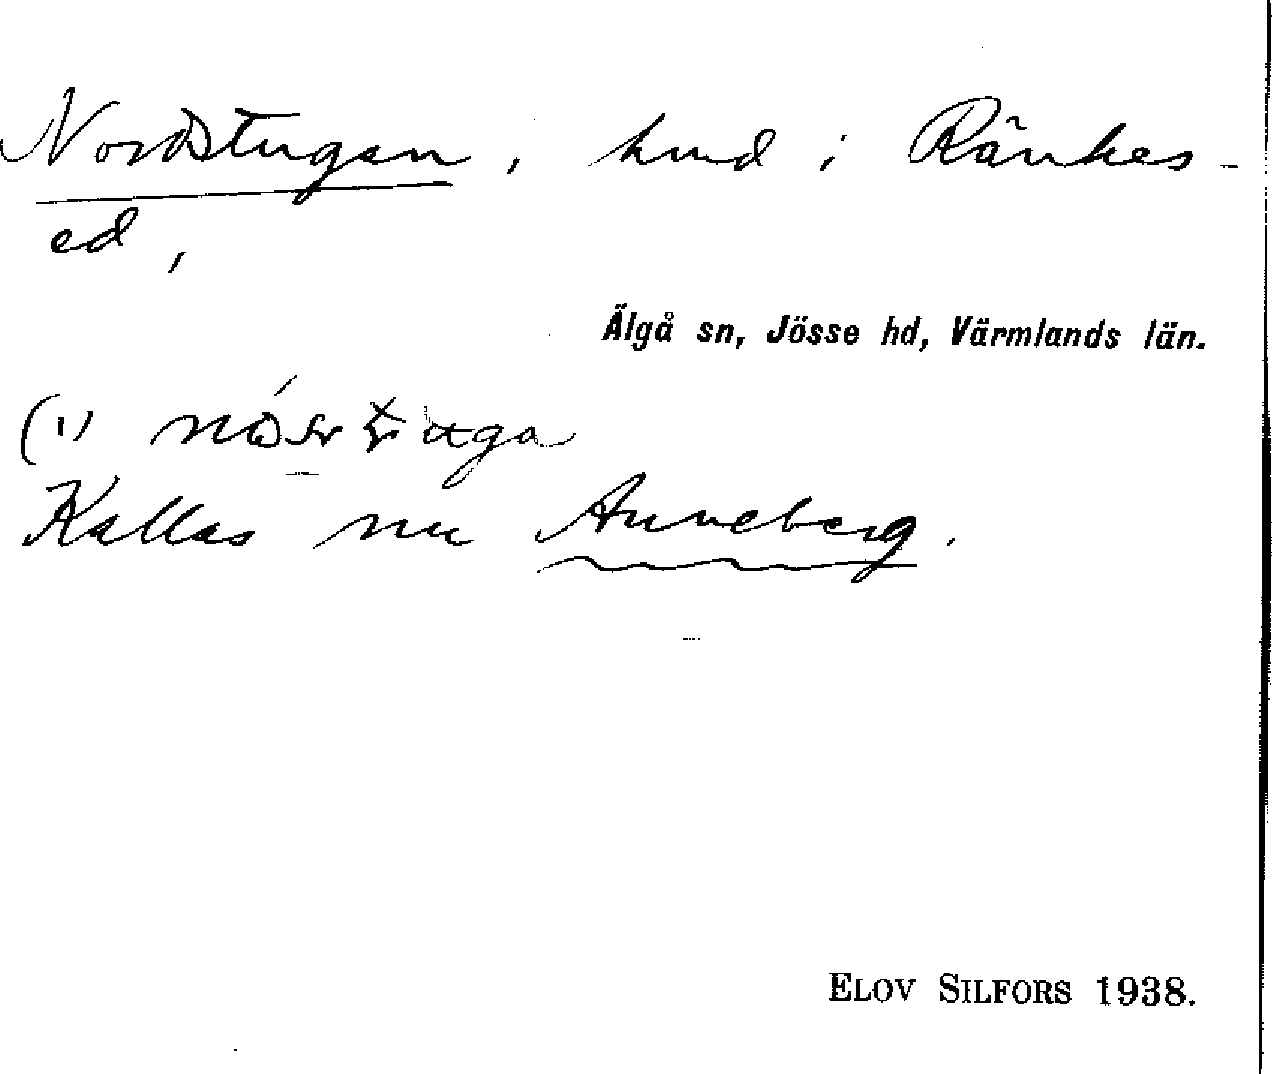 Nordstugan, hmd i Ränkes-
ed,
Älgå sn, Jösse hd, Värmlands län.
(1)
Kallas nu Anneberg.
ELOV SILFORS 1938.